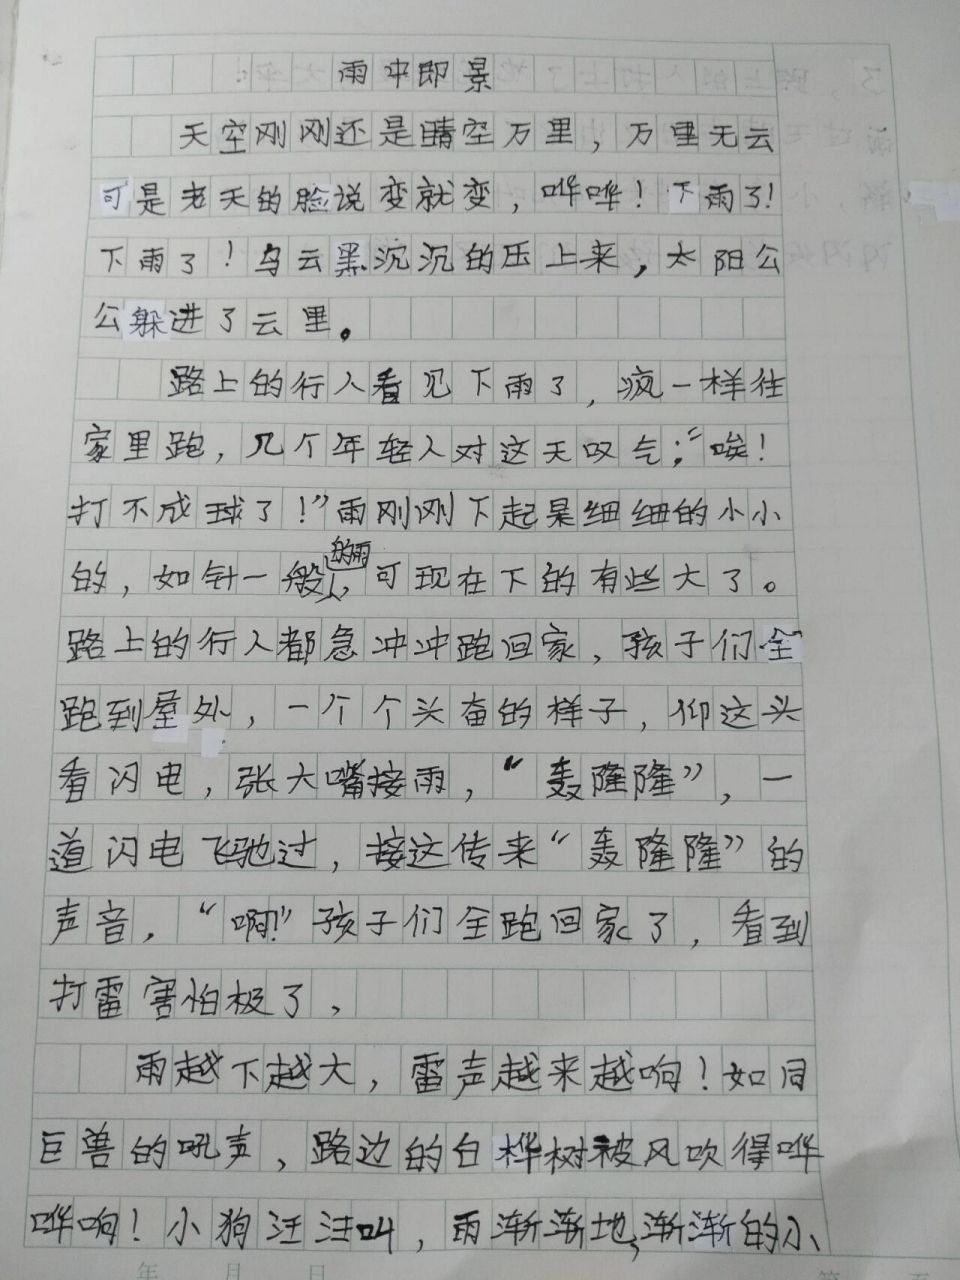 雨中即景
天空刚刚还是晴空万里，万里无云
可是老天的脸说变就变，哗哗！下雨了！
下雨了！乌云黑沉沉的压上来，太阳公
公躲进了云里。
路上的行人看见下雨了，疯一样往
家里跑，几个年轻人对这天叹气；“唉！
打不成球了！”雨刚刚下起是细细的小小
的，如针一般的雨，可现在下的有些大了。
路上的行人都急冲冲跑回家，孩子们全
跑到屋外，一个个头奋的样子，仰这头
看闪电，张大嘴接雨，“轰隆隆”，一
道闪电飞驰过，接这传来“轰隆隆”的
声音，“啊！”孩子们全跑回家了，看到
打雷害怕极了，
雨越下越大，雷声越来越响！如同
巨兽的吼声，路边的白桦树被风吹得哗
哗响！小狗汪汪叫，雨渐渐地，渐渐的小
年 月 日